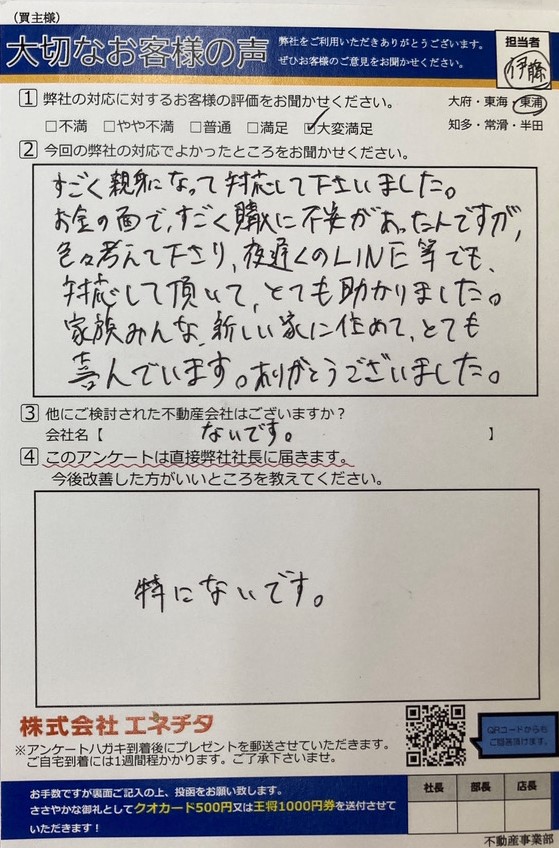 (買主様)
大切なお客様の声
弊社をご利用いただきありがとうございます。
ぜひお客様のご意見をお聞かせください。
担当者
伊藤
1 弊社の対応に対するお客様の評価をお聞かせください。
大府・東海・東浦
□不満 □やや不満 □普通 □満足 ☑大変満足
知多・常滑・半田
2 今回の弊社の対応でよかったところをお聞かせください。
すごく親身になって対応して下さいました。
お金の面で、すごく購入に不安があったんですが、
色々考えて下さり、夜遅くのLINE等でも、
対応して頂いて、とても助かりました。
家族みんな、新しい家に住めて、とても
喜んでいます。ありがとうございました。
3 他にご検討された不動産会社はございますか？
会社名【 ないです。 】
4 このアンケートは直接弊社社長に届きます。
今後改善した方がいいところを教えてください。
特にないです。
株式会社 エネチタ
※アンケートハガキ到着後にプレゼントを郵送させていただきます。
ご自宅到着には1週間程かかります。ご了承下さいませ。
QRコードからも
ご回答頂けます。
お手数ですが裏面ご記入の上、投函をお願い致します。
ささやかな御礼としてクオカード500円又は王将1000円券を送付させて
いただきます！
社長 部長 店長
不動産事業部